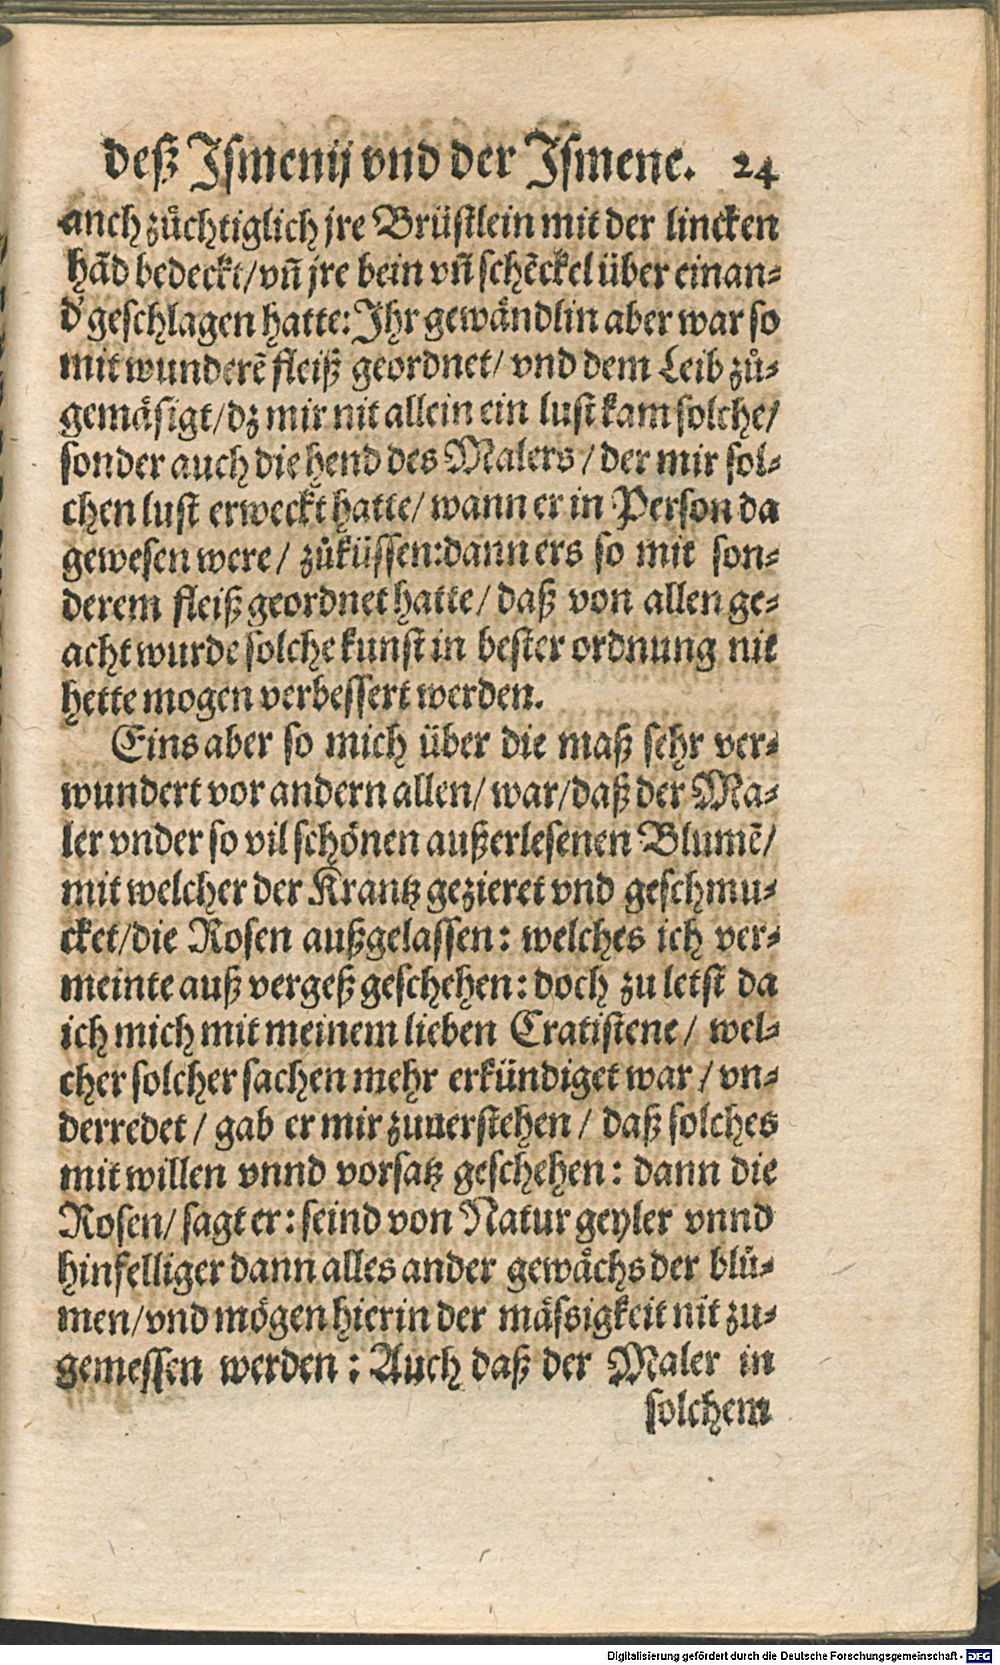 deß Ismenij vnd der Ismene. 24
anch zůchtiglich jre Brüstlein mit der lincken
hãd bedeckt/vñ jre bein vñ schẽckel über einan-
d' geschlagen hatte: Ihr gewåndlin aber war so
mit wunderẽ fleiß geordnet/ vnd dem Leib zů-
gemåsigt/dz mir nit allein ein lust kam solche/
sonder auch die hend des Malers / der mir sol-
chen lust erweckt hatte/ wann er in Person da
gewesen were/ zůküssen:dann ers so mit son-
derem fleiß geordnet hatte/ daß von allen ge-
acht wurde solche kunst in bester ordnung nit
hette mogen verbessert werden.
Eins aber so mich über die maß sehr ver-
wundert vor andern allen/ war/daß der Ma-
ler vnder so vil schönen außerlesenen Blumẽ/
mit welcher der Krantz gezieret vnd geschmu-
cket/die Rosen außgelassen: welches ich ver-
meinte auß vergeß geschehen: doch zu letst da
ich mich mit meinem lieben Cratistene/ wel-
cher solcher sachen mehr erkündiget war / vn-
derredet / gab er mir zuuerstehen / daß solches
mit willen vnnd vorsatz geschehen: dann die
Rosen/ sagt er: seind von Natur geyler vnnd
hinfelliger dann alles ander gewåchs der blů-
men/vnd mögen hierin der mässigkeit nit zu-
gemessen werden : Auch daß der Maler in
solchem
Digitalisierung gefördert durch die Deutsche Forschungsgemeinschaft - DFG